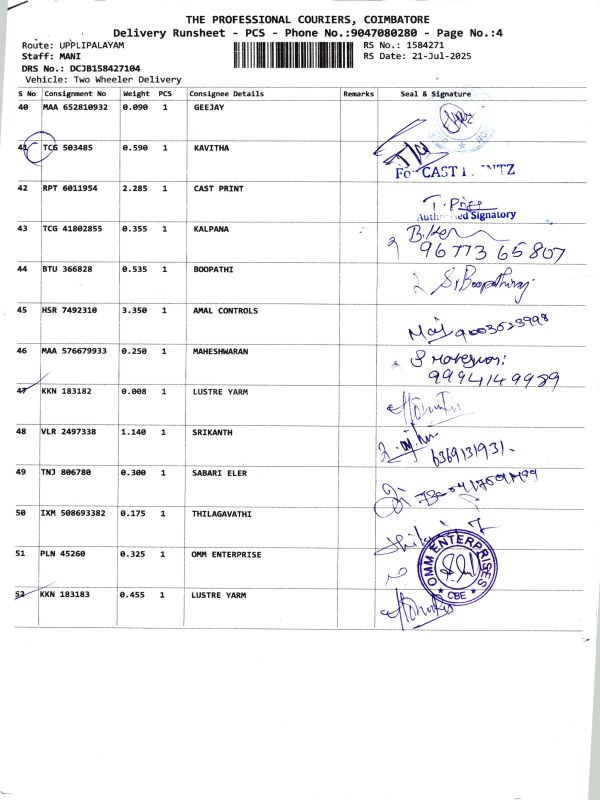 THE PROFESSIONAL COURIERS, COIMBATORE
Delivery Runsheet - PCS - Phone No.:9047080280 - Page No.:4
Route: UPPLIPALAYAM RS No.: 1584271
Staff: MANI RS Date: 21-Jul-2025
DRS No.: DCJB158427104
Vehicle: Two Wheeler Delivery
S No Consignment No Weight PCS Consignee Details Remarks Seal & Signature
40 MAA 652810932 0.090 1 GEEJAY
41 TCG 503485 0.590 1 KAVITHA
For CAST
42 RPT 6011954 2.285 1 CAST PRINT
Authorised Signatory
43 TCG 41802855 0.355 1 KALPANA
96773 65807
44 BTU 366828 0.535 1 BOOPATHI
S. Boopathiraj
45 HSR 7492310 3.350 1 AMAL CONTROLS
9003523998
46 MAA 576679933 0.250 1 MAHESHWARAN
9994149989
47 KKN 183182 0.008 1 LUSTRE YARM
48 VLR 2497338 1.140 1 SRIKANTH
6369131931.
49 TNJ 806780 0.300 1 SABARI ELER
50 IXM 508693382 0.175 1 THILAGAVATHI
51 PLN 45260 0.325 1 OMM ENTERPRISE
OMM ENTERPRISES
CBE
52 KKN 183183 0.455 1 LUSTRE YARM